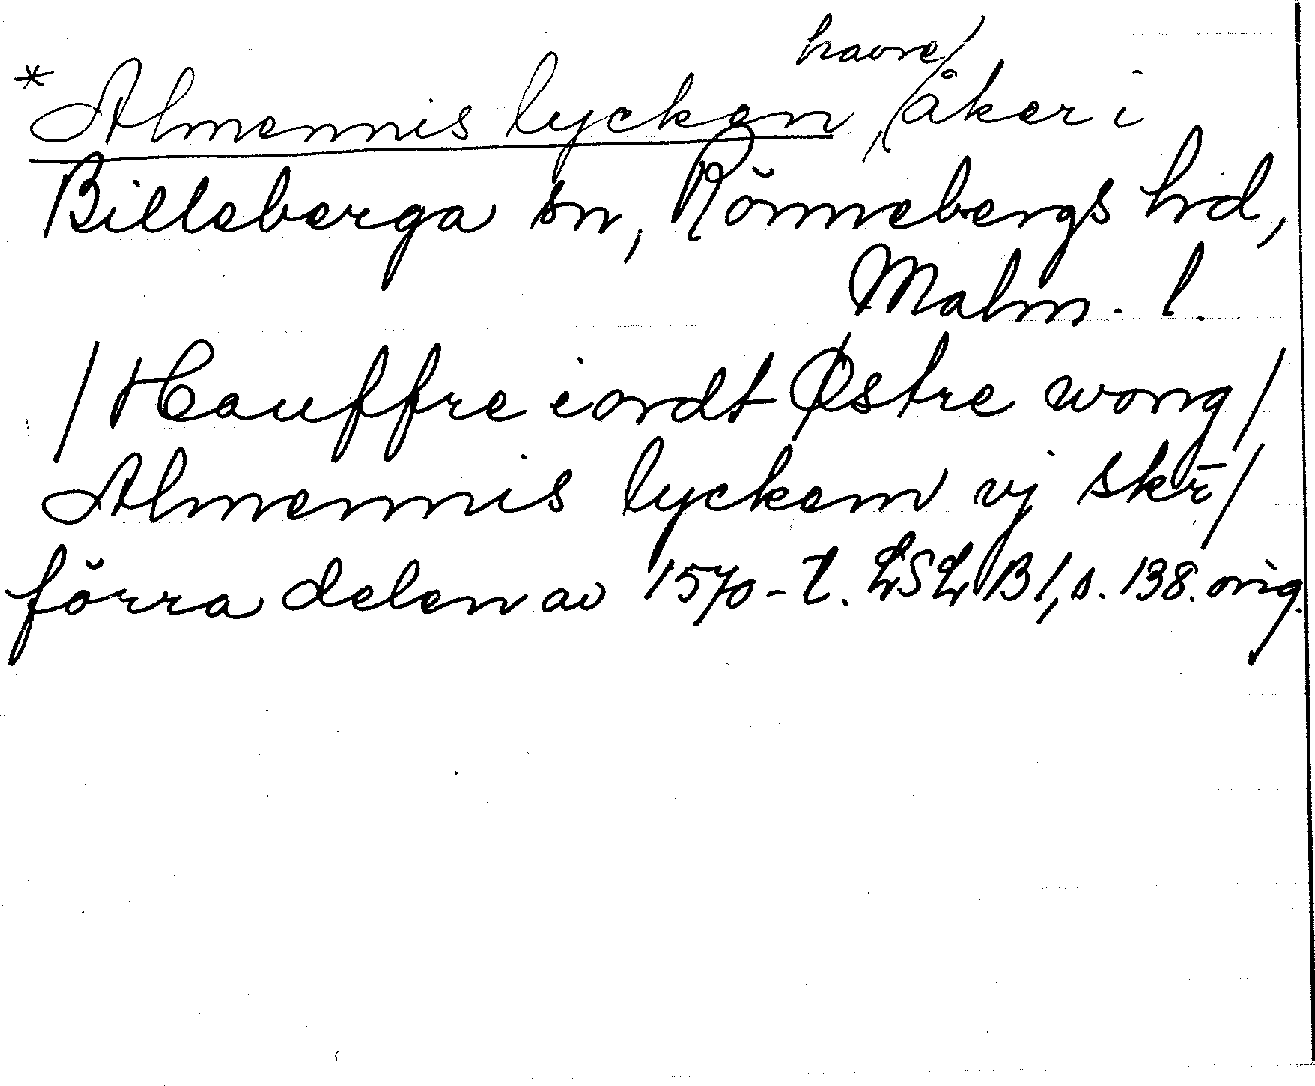 *Almennis lycken havre/åker i
Billeberga sn, Rönnebergs hd,
Malm. l.
/Hauffre iordt Østre wong/
Almennis lyckenn vj skr̄/
förra delen av 1570-t. LSL B1, s. 138. orig.